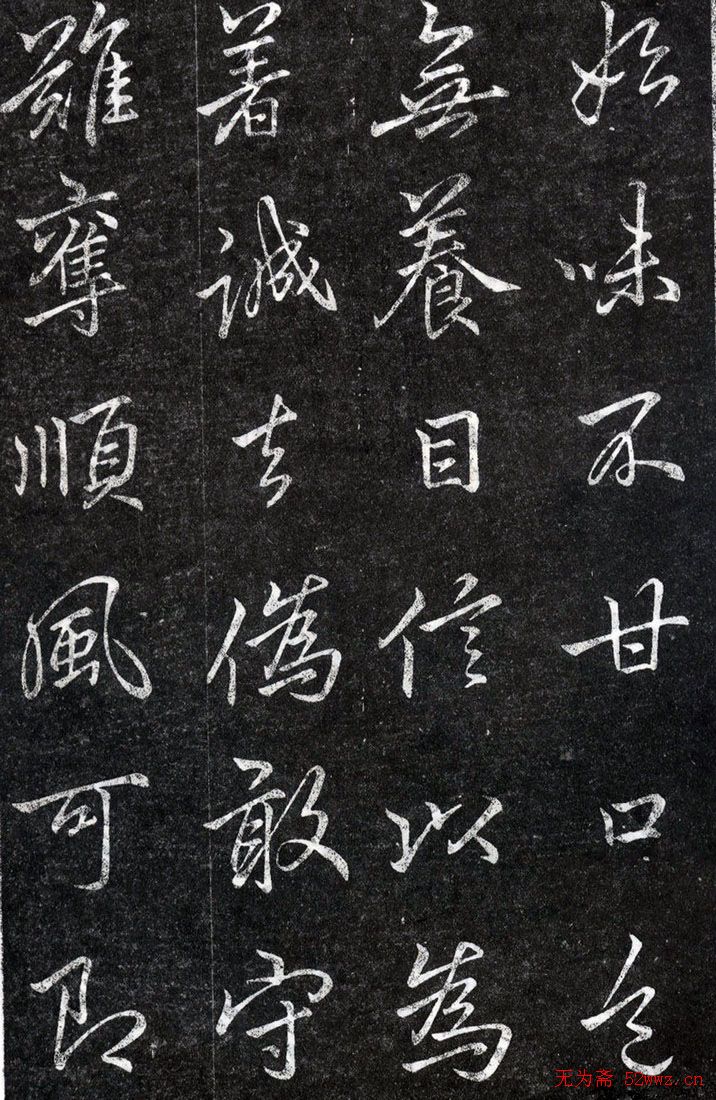 始味不甘口色
無養目信以為
着誠去偽敢守
難奪順風可即
无为斋 52wwz.cn